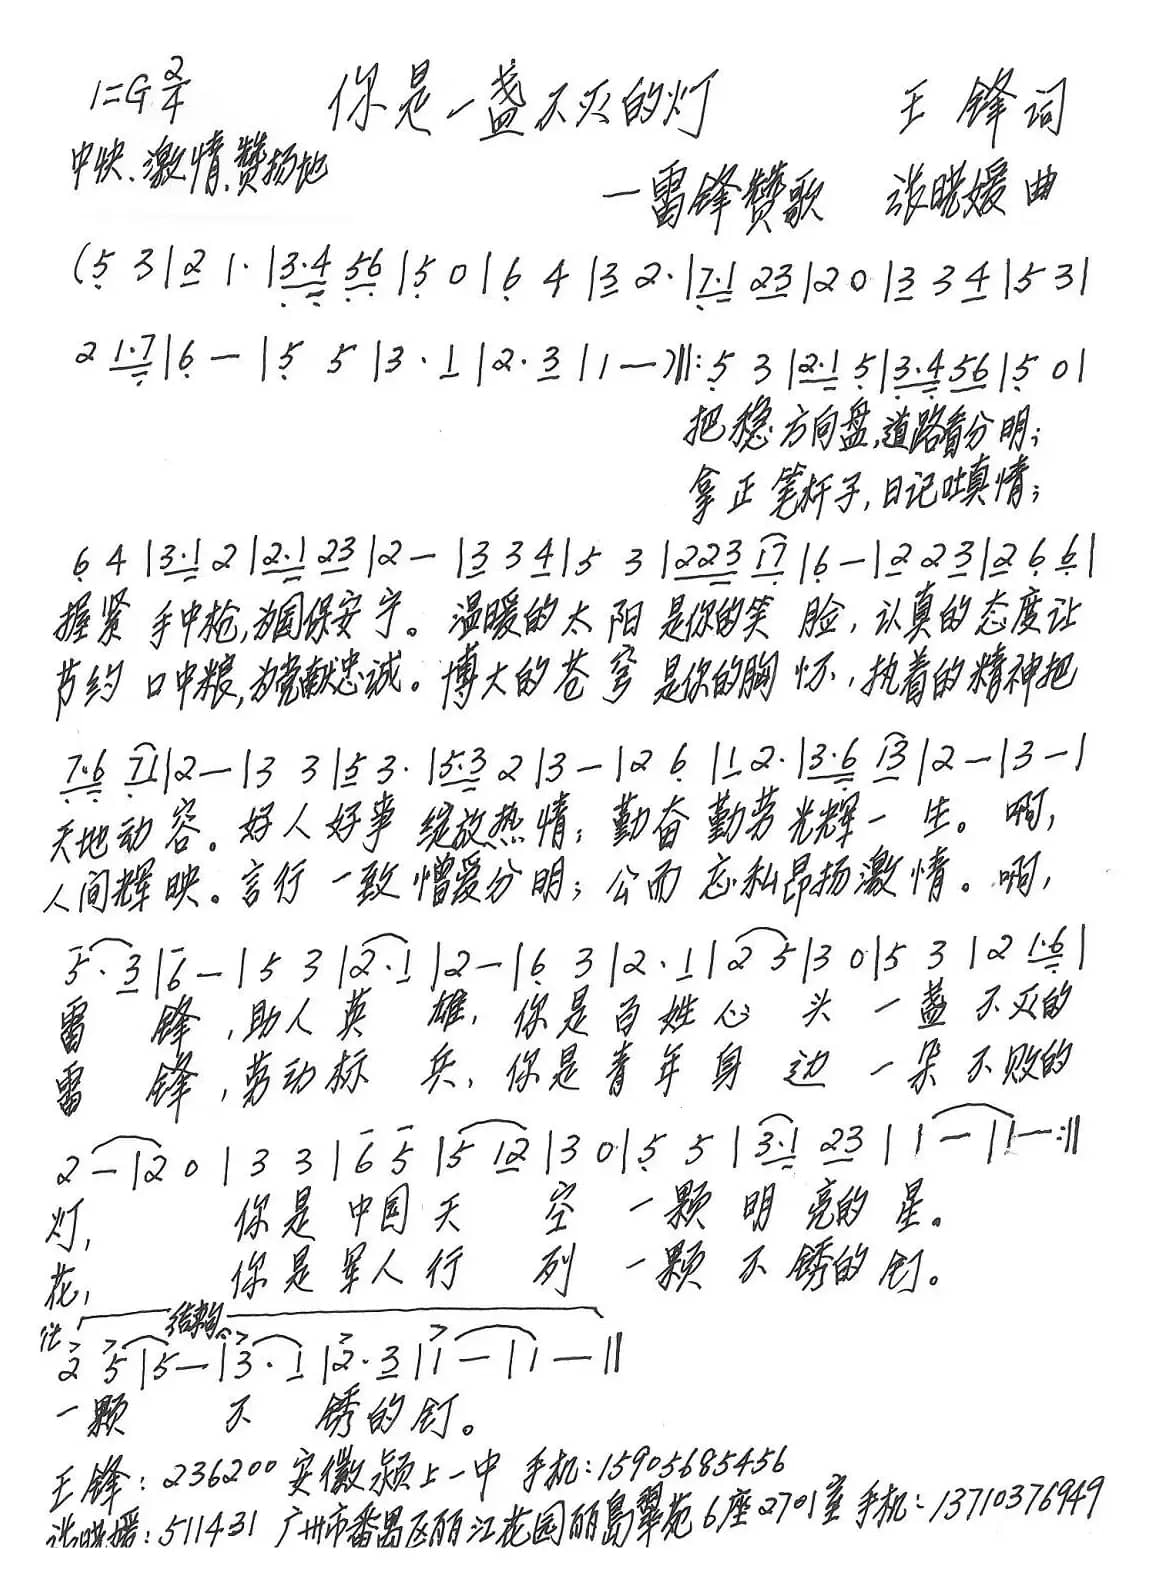 1=G 2/4 你是一盏不灭的灯 王锋词
中快、激情、赞扬地
—雷锋赞歌 张晓媛曲
(5 3|2 1·|3·4 56|5 0|6 4|3 2·|7·1 23|2 0|3 3 4|5 3|
2 1·7|6 —|5 5|3·1|2·3|1 —)‖:5 3|2·1 5|3·4 56|5 0|
把稳方向盘,道路看分明;
拿正笔杆子,日记吐真情;
6 4|3·1 2|2·1 23|2 —|3 3 4|5 3|223 17|6 —|2 2 3|2 6 6|
握紧手中枪,为国保安宁。温暖的太阳是你的笑脸,认真的态度让
节约口中粮,为党献忠诚。博大的苍穹是你的胸怀,执着的精神把
7·6 71|2 —|3 3|5 3·|5·3 2|3 —|2 6|1 2·|3·6 13|2 —|3 —|
天地动容。好人好事绽放热情;勤奋勤劳光辉一生。啊,
人间辉映。言行一致憎爱分明;公而忘私昂扬激情。啊,
5·3|6 —|5 3|2·1|2 —|6 3|2·1|2 5|3 0|5 3|2 1·6|
雷锋,助人英雄,你是百姓心头一盏不灭的
雷锋,劳动标兵,你是青年身边一朵不败的
2 —|2 0|3 3|6 5|5 12|3 0|5 5|3·1 23|1 —|1 —:‖
灯,你是中国天空一颗明亮的星。
花,你是军人行列一颗不锈的钉。
结束句
2 5|5 —|3·1|2·3|1 —|1 —‖
一颗不锈的钉。
王锋:236200 安徽颍上一中 手机:15905685456
张晓援:511431 广州市番禺区丽江花园丽岛翠苑6座2701室 手机:13710376949